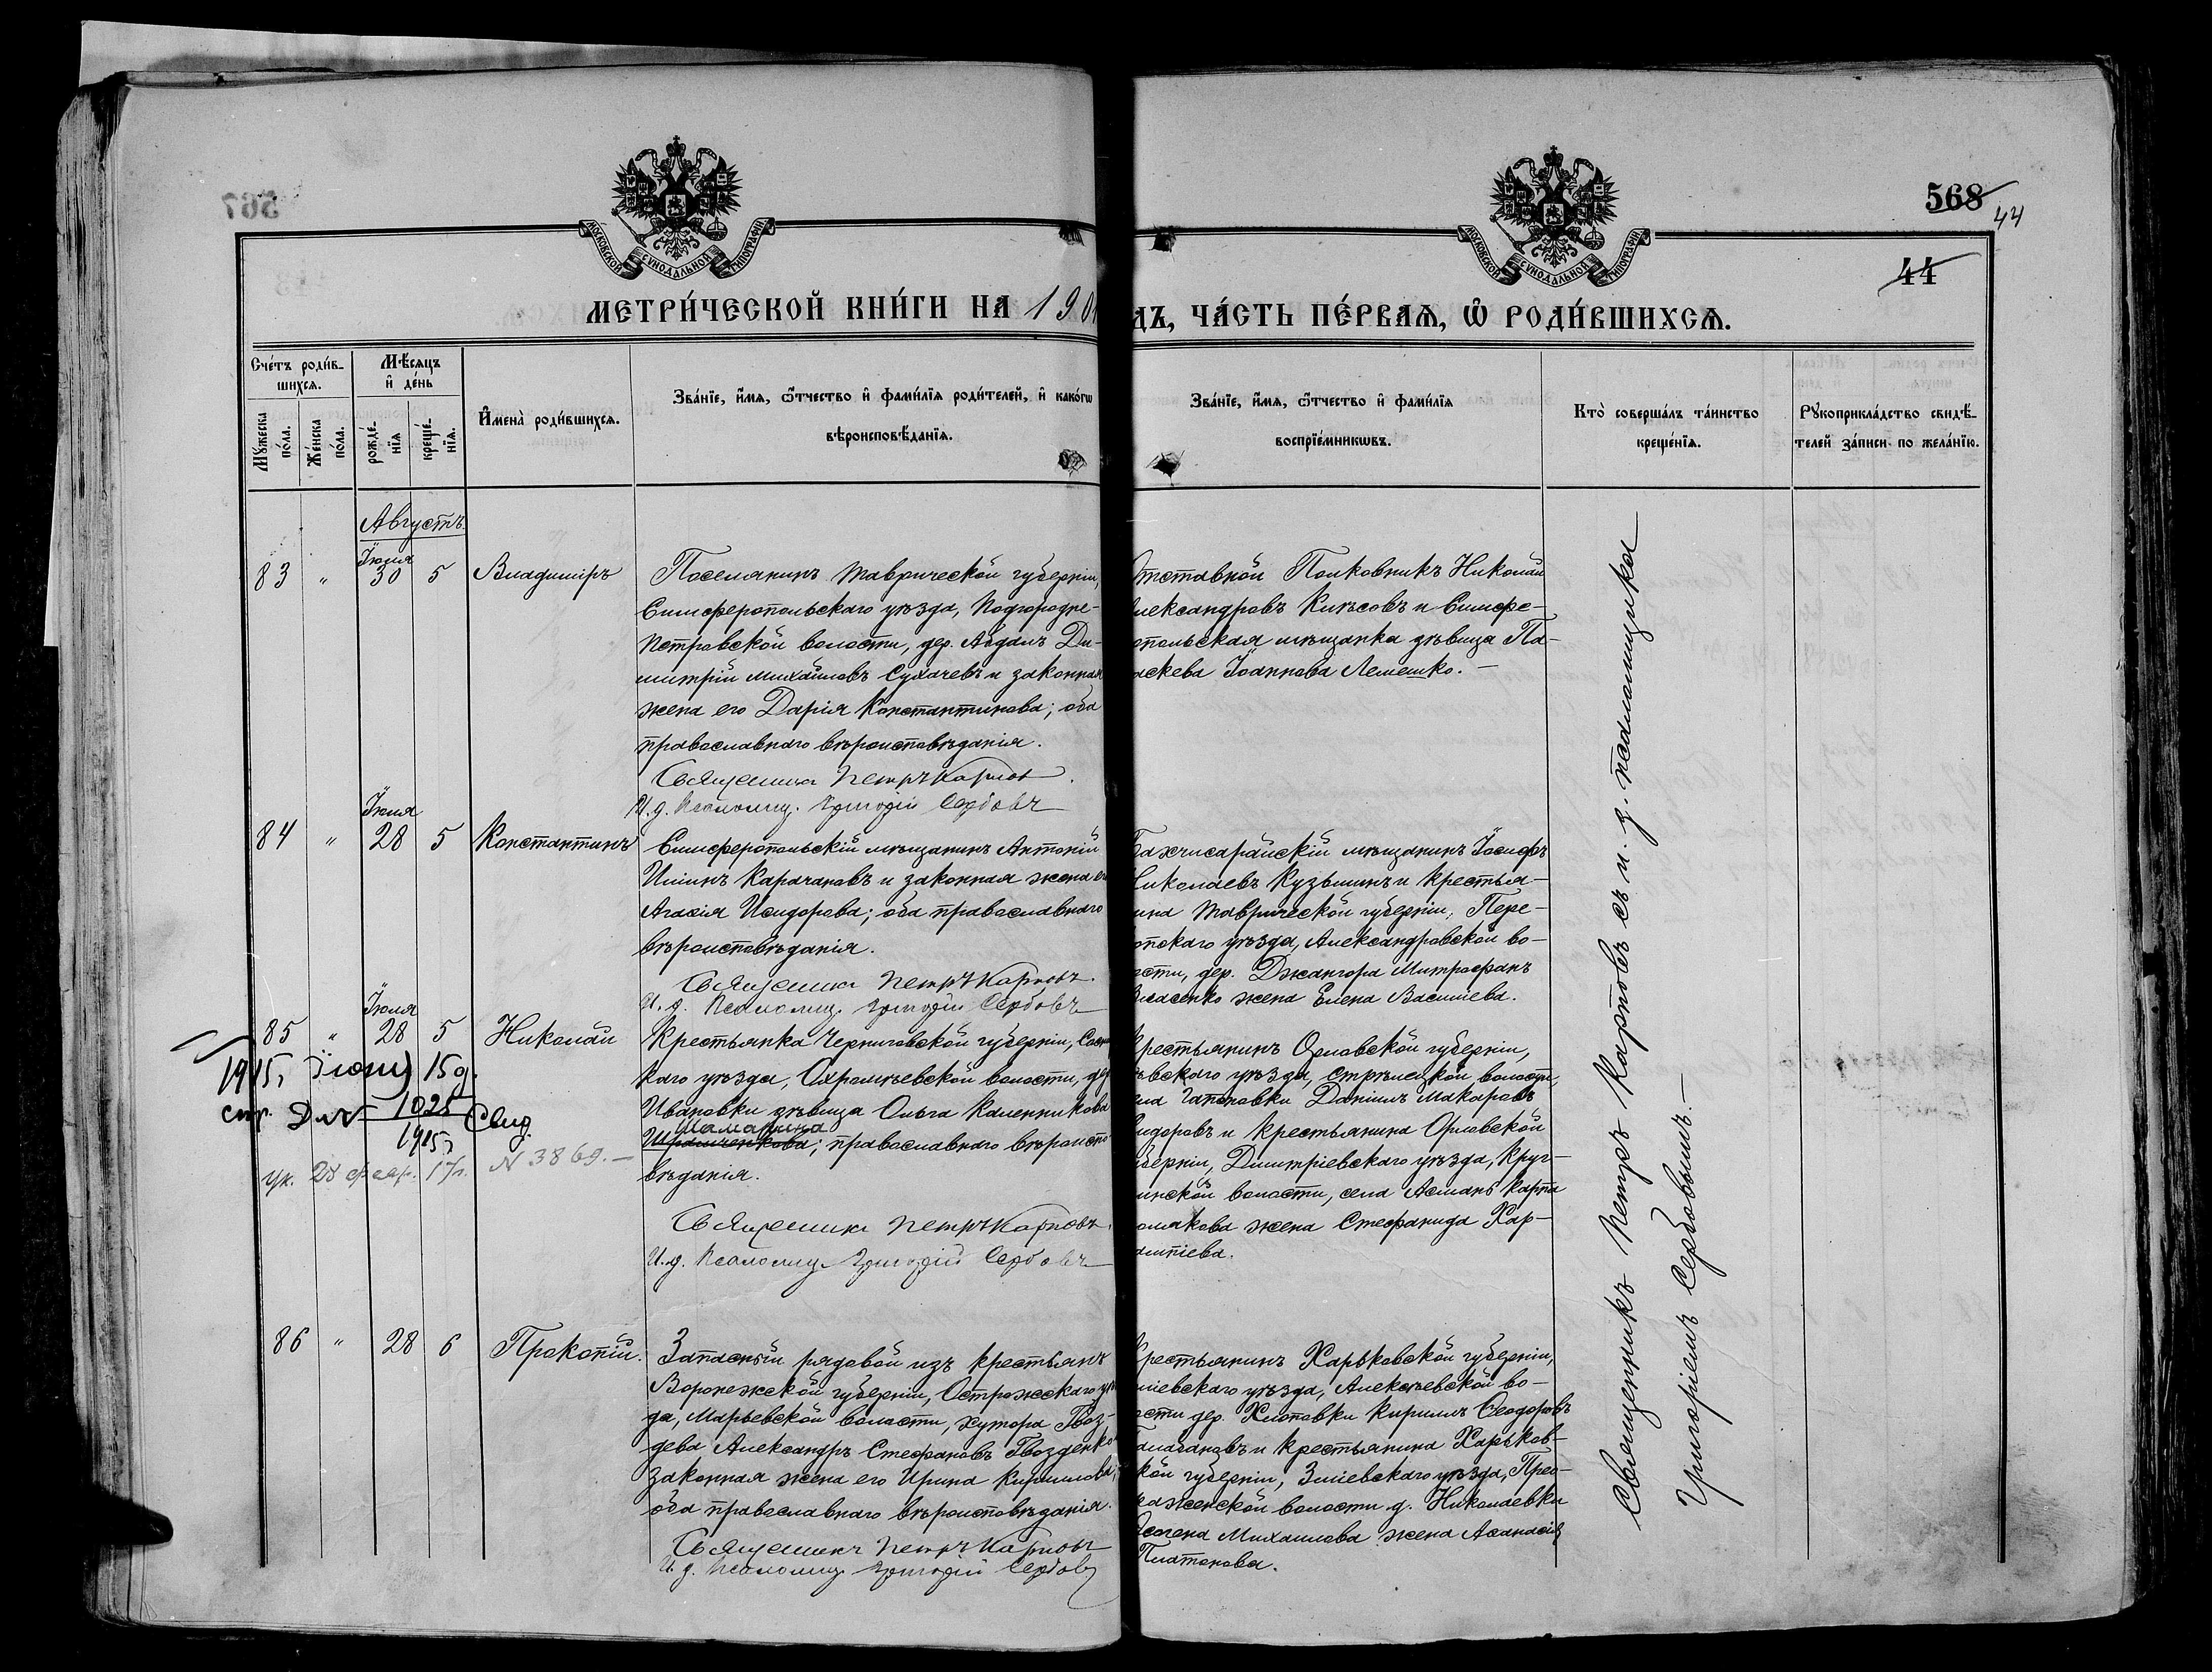 567
568
44
44
МОСКОВСКОЙ СУНОДАЛЬНОЙ ТИПОГРАФІИ
МОСКОВСКОЙ СУНОДАЛЬНОЙ ТИПОГРАФІИ
МЕТРИ́ЧЕСКОЙ КНИ́ГИ НА 190
ДЪ, ЧА́СТЬ ПЕ́РВАѦ, Ѡ РОДИ́ВШИХСѦ.
Сче́тъ роди́в-
шихсѧ.
Мѣ́сѧцъ
и҆ де́нь
Мꙋжеска по́ла.
Же́нска по́ла.
рожде́-
нїѧ
креще́-
нїѧ.
И҆мена̀ роди́вшихсѧ.
Зва́нїе, и҆́мѧ, ѻ҆́тчество и҆ фами́лїѧ роди́телей, и҆ како́гѡ
вѣроисповѣ́данїѧ.
Зва́нїе, и҆́мѧ, ѻ҆́тчество и҆ фами́лїѧ
воспрїе́мникѡвъ.
Кто̀ соверша́лъ та́инство
креще́нїѧ.
Рꙋкоприкла́дство свидѣ́-
телей за́писи по жела́нїю.
Августъ.
Іюля
83 " 30 5 Владиміръ
Поселянинъ Таврической губерніи,
Симферопольскаго уѣзда, Подгородне-
Петровской волости, дер. Абдалъ Ди-
митрій Михайловъ Сухачевъ и законная
жена его Дарія Константинова; оба
православнаго вѣроисповѣданія.
Священникъ Петръ Карповъ.
И.д. Псаломщ. Григорій Сербовъ
тставной Полковникъ Николай
лександровъ Киясовъ и Симфе-
опольская мѣщанка дѣвица Па-
аскева Іоаннова Лемешко.
Іюля
84 " 28 5 Константинъ
Симферопольскій мѣщанинъ Антоній
Ильинъ Карачановъ и законная жена ег
Агасія Исидорова; оба православнаго
вѣроисповѣданія.
Священникъ Петръ Карповъ.
И.д. Псаломщ. Григорій Сербовъ
Бахчисарайскій мѣщанинъ Іосифъ
Николаевъ Кузьминъ и крестья-
нина Таврической губерніи, Пере-
опскаго уѣзда, Александровской во-
ости, дер. Джангора Митрофанъ
Власенко жена Елена Василіева.
Іюля
85 " 28 5 Николай
1915, Іюня 15 д.
1025
1915
Свид.
Ук. 28 февр. 17 г. N 3869.
Крестьянка Черниговской губерніи, Сосн
каго уѣзда, Охрамѣевской волости, де
Ивановки дѣвица Ольга Каленникова
Шрамченкова; православнаго вѣроиспо
вѣданія.
Священникъ Петръ Карповъ.
И.д. Псаломщ. Григорій Сербовъ
рестьянинъ Орловской губерніи,
вскаго уѣзда, Стрѣлецкой волости,
ела Гапоновки Даніилъ Макаровъ
идоровъ и крестьянина Орловской
уберніи, Димитріевскаго уѣзда, Круг-
инской волости, села Асмань Карпа
омакова жена Стефанида Хар-
ампіева.
86 " 28 6 Прокопій.
Запасный рядовой изъ крестьянъ
Воронежской губерніи, Острожскаго уѣз
да, Марьевской волости, хутора Гвоз-
дева Александръ Стефановъ Гвозденко
законная жена его Ирина Кириллова;
оба православнаго вѣроисповѣданія.
Священникъ Петръ Карповъ
И.д. Псаломщ. Григорій Сербовъ
рестьянинъ Харьковской губерніи,
міевскаго уѣзда, Алексѣевской во-
ости дер. Хлоповки Кириллъ Ѳеодоровъ
алабановъ и крестьянина Харьков-
кой губерніи, Зміевскаго уѣзда, Прео-
раженской волости д. Николаевки
Михаилова жена Аѳанасія
Платонова.
Священникъ Петръ Карповъ съ и. д. псаломщика
Григоріемъ Сербовымъ.